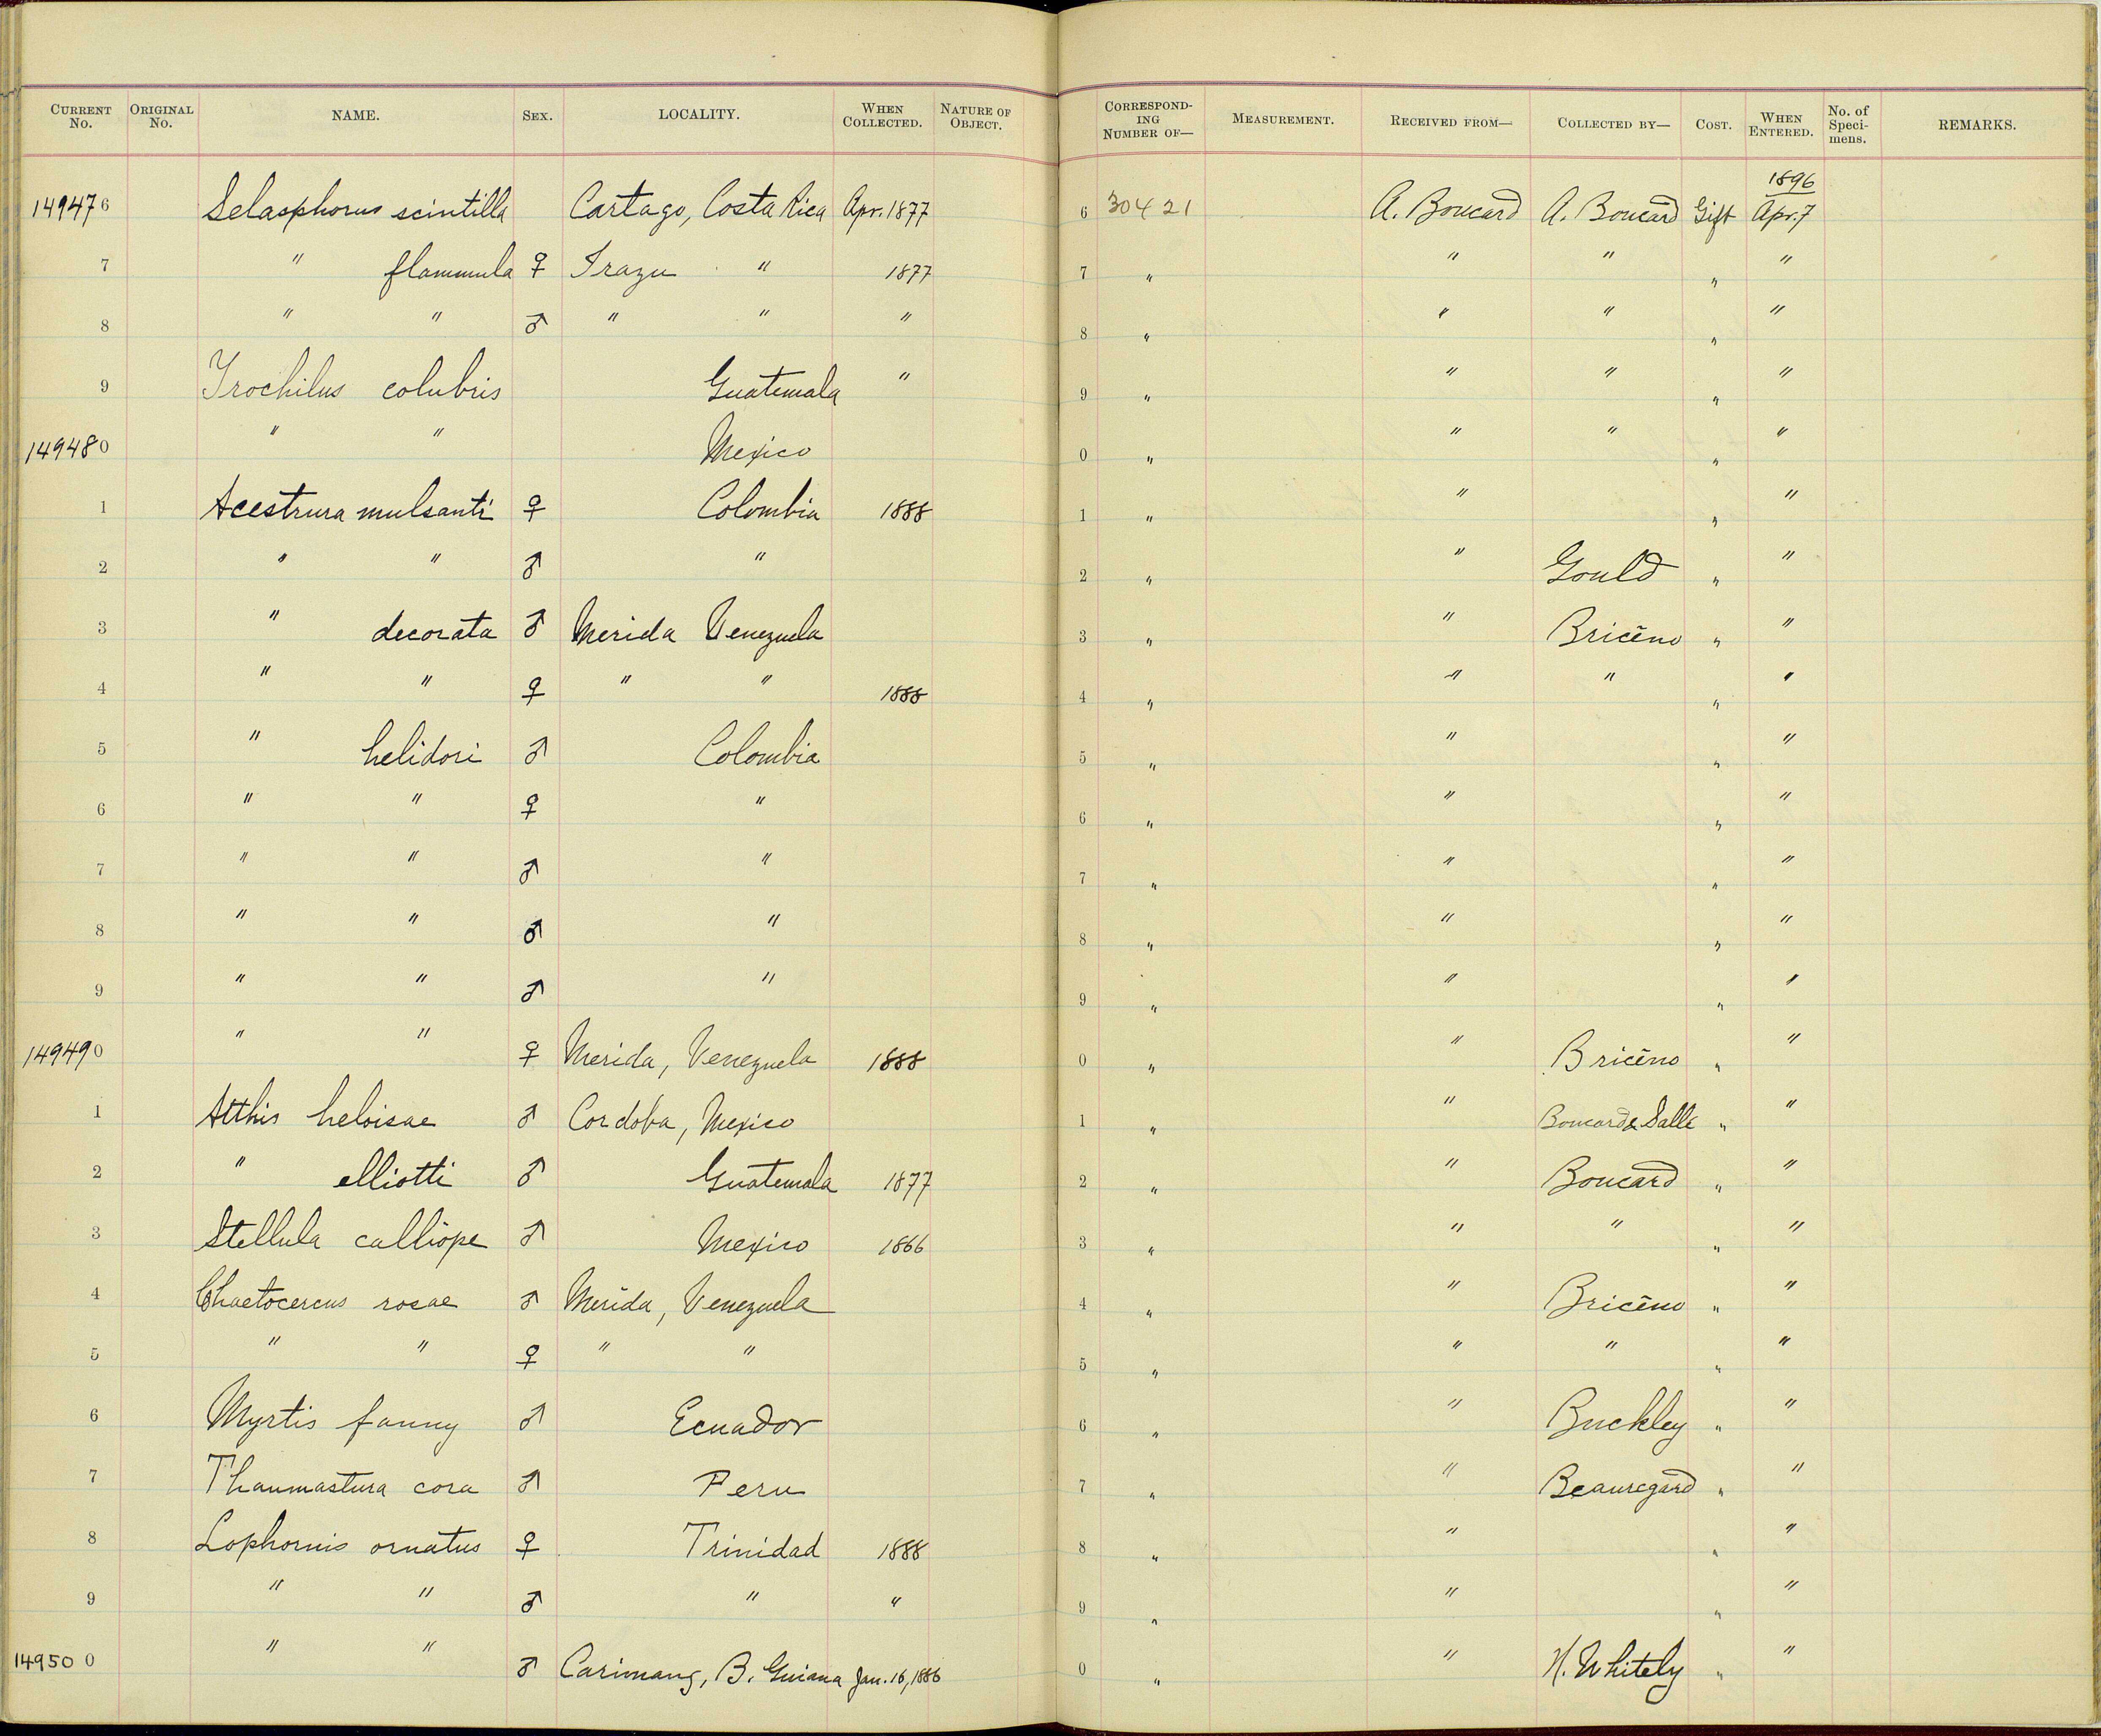 CURRENT No. ORIGINAL No. NAME. SEX. LOCALITY. WHEN COLLECTED. NATURE OF OBJECT. CORRESPONDING NUMBER OF— MEASUREMENT. RECEIVED FROM— COLLECTED BY— COST. WHEN ENTERED. No. of Speci-mens. REMARKS.
149476 Selasphorus scintilla Cartago, Costa Rica Apr. 1877 6 30421 A. Boucard A. Boucard Gift 1896 Apr. 7
7 " flammula ♀ Irazu " 1877 7 " " " " "
8 " " ♂ " " " 8 " " " " "
9 Trochilus colubris Guatemala " 9 " " " " "
149480 " " Mexico 0 " " " " "
1 Acestrura mulsanti ♀ Colombia 1888 1 " " " "
2 " " ♂ " 2 " " Gould " "
3 " decorata ♂ Merida Venezuela 3 " " Bricēno " "
4 " " ♀ " " 1888 4 " " " " "
5 " helidori ♂ Colombia 5 " " " "
6 " " ♀ " 6 " " " "
7 " " ♂ " 7 " " " "
8 " " ♂ " 8 " " " "
9 " " ♂ " 9 " " " "
149490 " " ♀ Merida, Venezuela 1888 0 " " Bricēno " "
1 Atthis heloisae ♂ Cordoba, Mexico 1 " " Boucard & Salle " "
2 " elliotti ♂ Guatemala 1877 2 " " Boucard " "
3 Stellula calliope ♂ Mexico 1866 3 " " " " "
4 Chaetocercus rosae ♂ Merida, Venezuela 4 " " Bricēno " "
5 " " ♀ " " 5 " " " " "
6 Myrtis fanny ♂ Ecuador 6 " " Buckley " "
7 Thaumastura cora ♂ Peru 7 " " Beauregard " "
8 Lophornis ornatus ♀ Trinidad 1888 8 " " " "
9 " " ♂ " " 9 " " " "
149500 " " ♂ Carimang, B. Guiana Jan. 16, 1886 0 " " H. Whitely " "